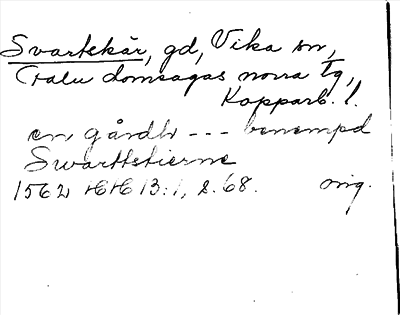 Svartskär, gd, Vika sn,
Falu domsagas norra tg,
Kopparb. l.
en gårdh --- benempd
Swarttskierne
1562 HH 13:1, s. 68. orig.